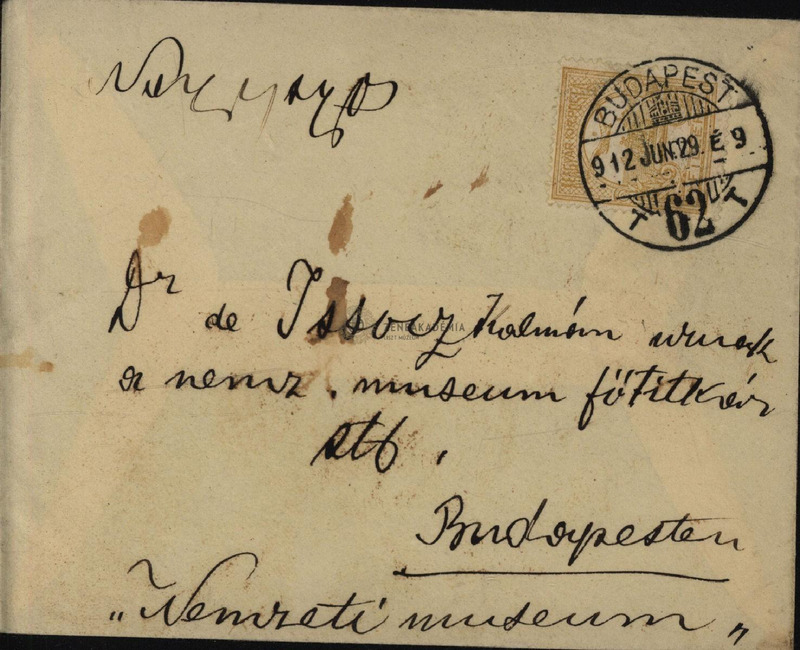 BUDAPEST
912 JUN. 29 É 9
T 62 T
MAGYAR
Dr de Issowz Kalmán urnak
ZENEAKADÉMIA
a nemz. museum főtitkár
stb.
Budapesten
„Nemzeti museum„